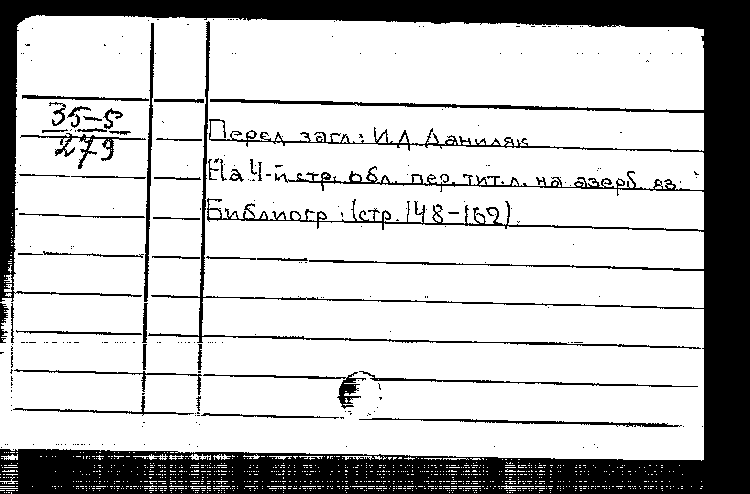 35-5
279
Перед загл.: И.Д. Даниляк
На 4-й стр. обл. пер. тит. л. на азерб. яз.
Библиогр.: (стр. 148-162).